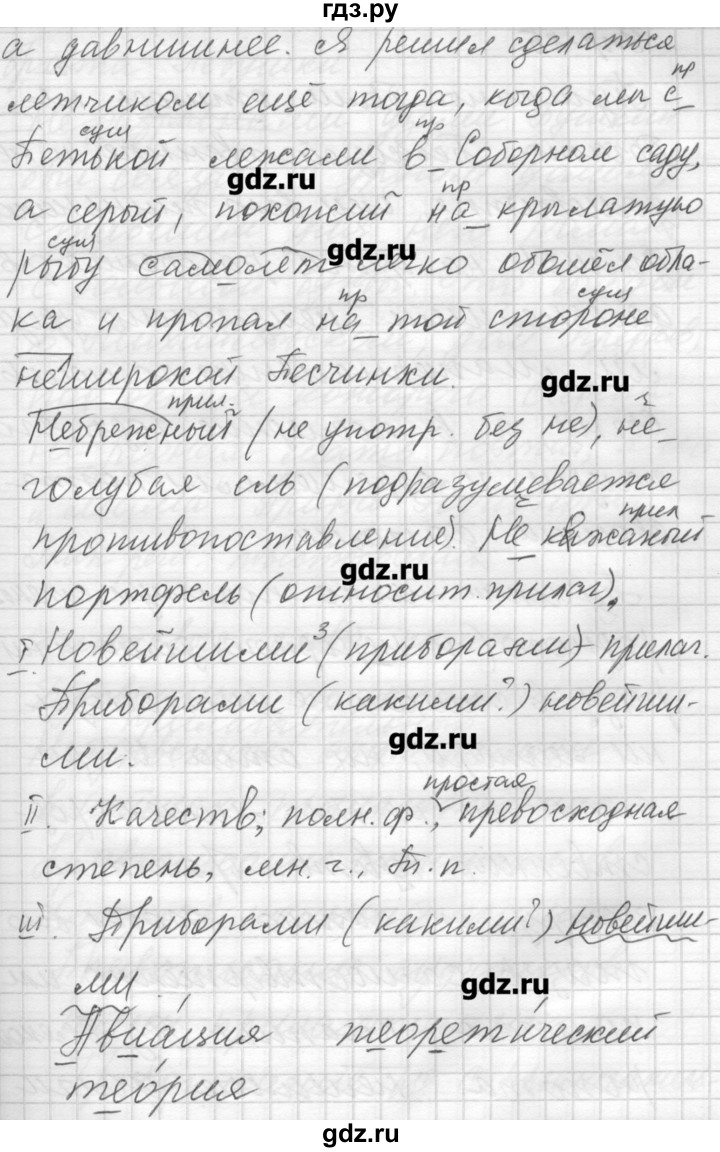 гдз.ру
а давнишнее. Я решил сделаться
пр
летчиком ещё тогда, когда мы с
сущ пр
Петькой лежали в Соборном саду,
gdz.ru
пр
а серый, похожий на крылатую
сущ
gdz.ru
рыбу самолёт легко обошёл обла-
пр сущ
ка и пропал на той стороне
неширокой Песчинки.
gdz.ru
прил.
Небрежный (не употр. без не), не
голубая ель (подразумевается
прил
противопоставление). Не кожаный
gdz.ru
портфель (относит. прилаг).
I. Новейшими³ (приборами) – прилаг.
Приборами (какими?) новейши-
gdz.ru
ми.
простая
II. Качеств; полн. ф., превосходная
степень, мн. ч., Тп. п.
III. Приборами (какими?) новейши-
ми.
gdz.ru
Авиация теоретический
теория
gdz.ru